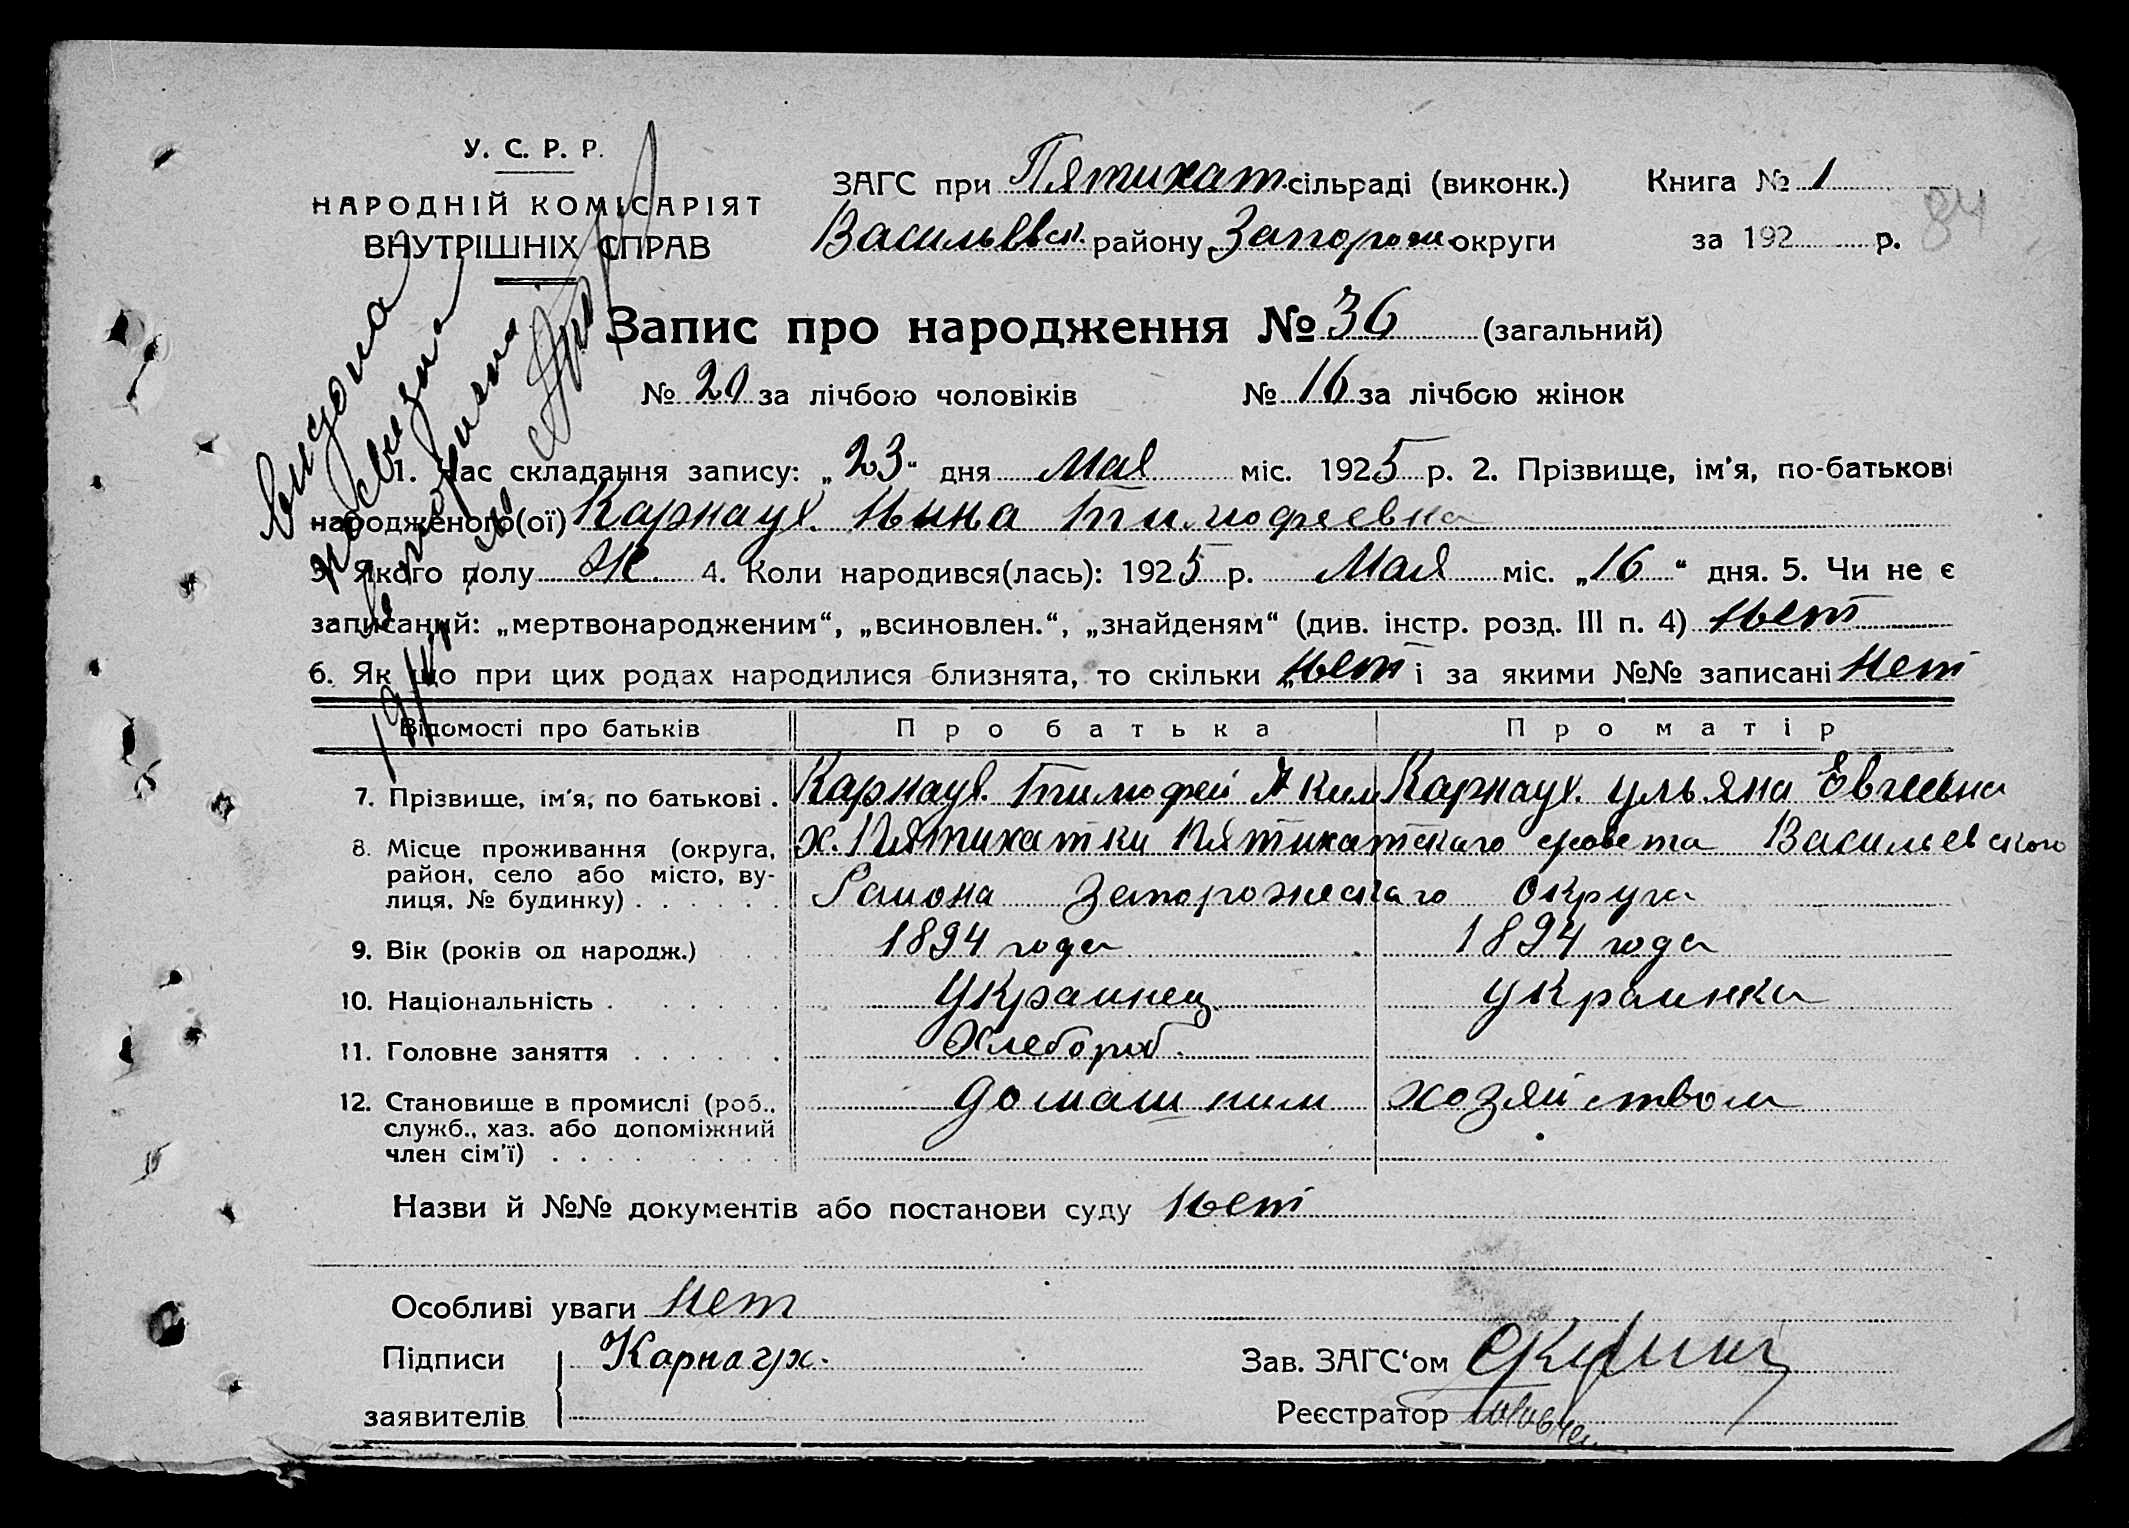 У. С. Р. Р.
НАРОДНІЙ КОМІСАРІЯТ
ВНУТРІШНІХ СПРАВ
ЗАГС при Пятихат сільраді (виконк.) Книга № 1
Васильевск. району Запорож округи за 192 р.
84
Запис про народження № 36 (загальний)
№ 20 за лічбою чоловіків № 16 за лічбою жінок
1. Час складання запису: „23“ дня Мая міс. 1925 р. 2. Прізвище, ім'я, по-батькові
народженого(ої) Карнаух. Нина Тимофеевна
3. Якого полу Ж. 4. Коли народився(лась): 1925 р. Мая міс. „16“ дня. 5. Чи не є
записаний: „мертвонародженим“, „всиновлен.“, „знайденям“ (див. інстр. розд. III п. 4) нет
6. Як що при цих родах народилися близнята, то скільки „нет і за якими №№ записані нет
Відомості про батьків Про батька Про матір
7. Прізвище, ім'я, по батькові . Карнаух. Тимофей Яким Карнаух. Ульяна
8. Місце проживання (округа, район, село або місто, вулиця, № будинку) х. Пятихатки Пятихатскаго совета Васильевского
Района Запорожескаго Округа
9. Вік (років од народж.) 1894 года 1894 года
10. Національність Украинец Украинка
11. Головне заняття Хлебороб.
12. Становище в промислі (роб., служб., хаз. або допоміжний член сім'ї) домашним хозяйством
Назви й №№ документів або постанови суду нет
Особливі уваги нет
Підписи заявителів Карнаух.
Зав. ЗАГС‘ом
Реєстратор
Видана